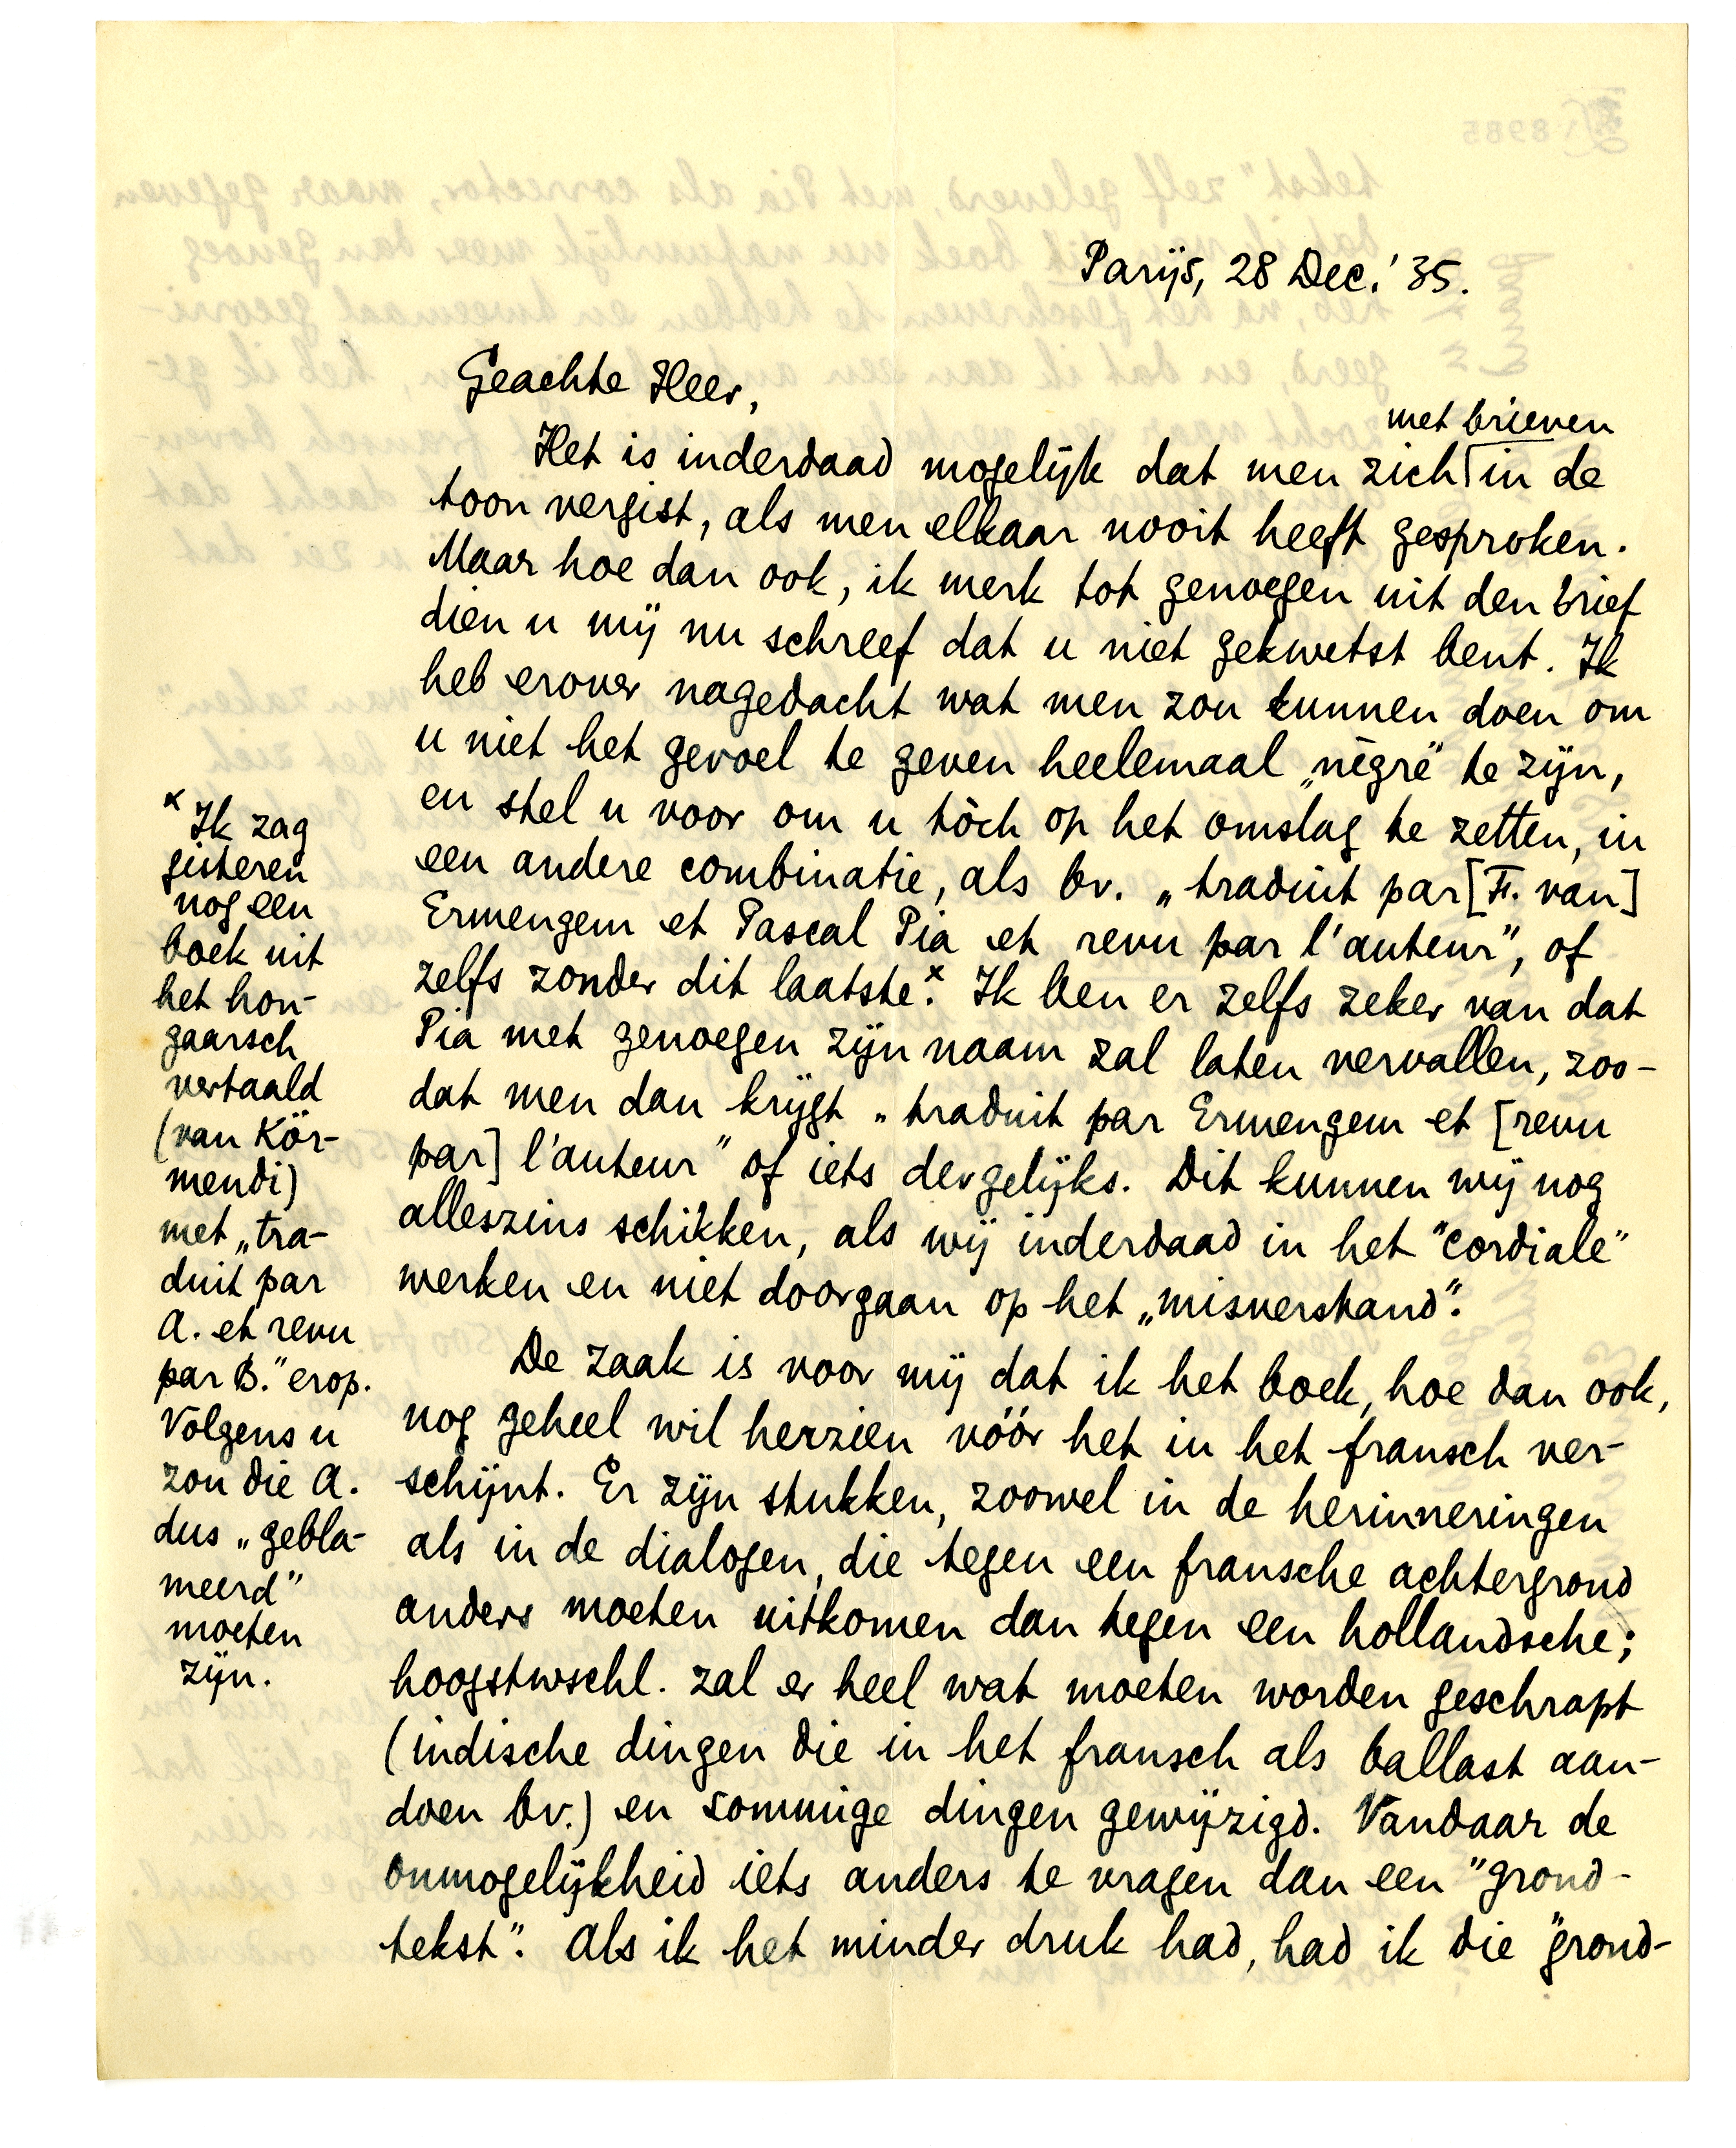 Parijs, 28 Dec. '35.
Geachte Heer,
met brieven
Het is inderdaad mogelijk dat men zich in de
toon vergist, als men elkaar nooit heeft gesproken.
Maar hoe dan ook, ik merk tot genoegen uit den brief
dien u mij nu schreef dat u niet gekwetst bent. Ik
heb erover nagedacht wat men zou kunnen doen om
u niet het gevoel te geven heelemaal „nègre” te zijn,
en stel u voor om u tòch op het omslag te zetten, in
een andere combinatie, als bv. „traduit par [F. van]
Ermengem et Pascal Pia et revu par l'auteur”, of
zelfs zonder dit laatste.x Ik ben er zelfs zeker van dat
Pia met genoegen zijn naam zal laten vervallen, zoo-
dat men dan krijgt „traduit par Ermengem et [revu
par] l'auteur” of iets dergelijks. Dit kunnen wij nog
alleszins schikken, als wij inderdaad in het "cordiale"
werken en niet doorgaan op het „misverstand”.
De zaak is voor mij dat ik het boek, hoe dan ook,
nog geheel wil herzien vóór het in het fransch ver-
schijnt. Er zijn stukken, zoowel in de herinneringen
als in de dialogen, die tegen een fransche achtergrond
anders moeten uitkomen dan tegen een hollandsche;
hoogstwschl. zal er heel wat moeten worden geschrapt
(indische dingen die in het fransch als ballast aan-
doen bv.) en sommige dingen gewijzigd. Vandaar de
onmogelijkheid iets anders te vragen dan een "grond-
tekst". Als ik het minder druk had, had ik die "grond-
x Ik zag
gisteren
nog een
boek uit
het hon-
gaarsch
vertaald
(van Kör-
mendi)
met „tra-
duit par
A. et revu
par B.” erop.
Volgens u
zou die A.
dus „gebla-
meerd”
moeten
zijn.